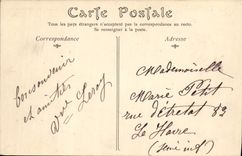 Carte Postale
Tous les pays étrangers n'acceptent pas la correspondance au recto.
Se renseigner à la poste.
Correspondance
Adresse
bon souvenir
et amitiés
Leroy
Mademoiselle
Marie Petit
rue d'Etretat 83
Le Havre
(Seine inf)